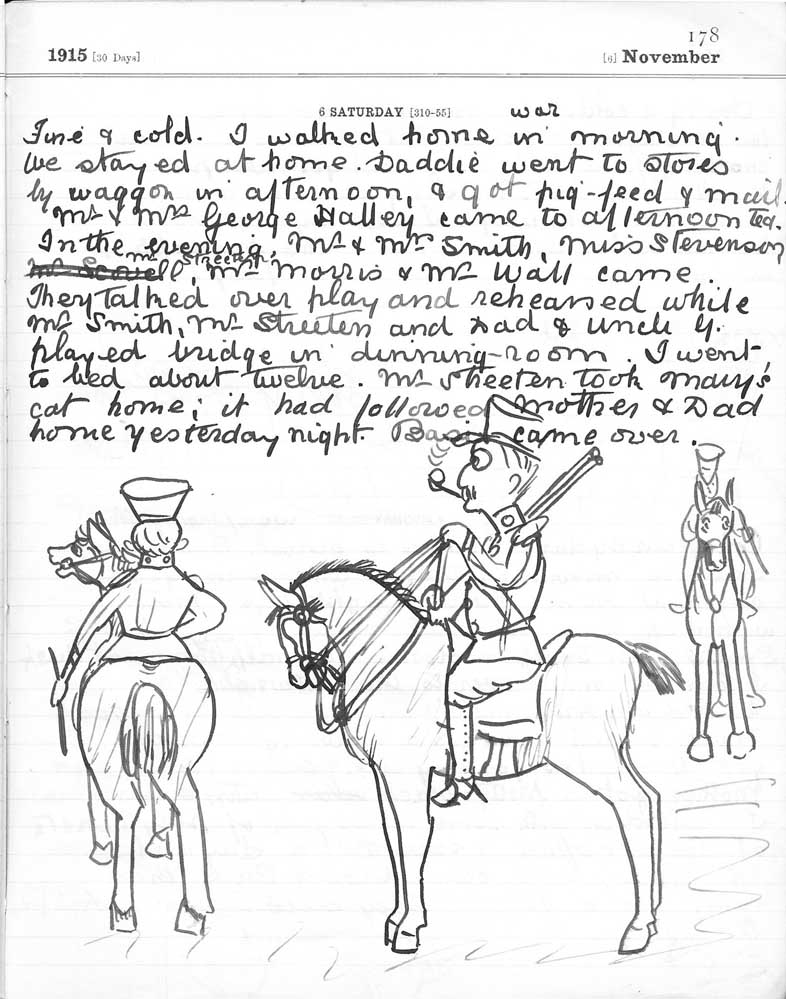 178
1915 [30 Days] [6] November
6 SATURDAY [310-55] war
Fine & cold. I walked home in morning.
We stayed at home. Daddie went to stores
by waggon in afternoon, & got pig-feed & mail.
Mr & Mrs George Halley came to afternoon tea.
In the evening, Mr & Mrs Smith, Miss Stevenson
Mr Streeten,
Mr Scovell, Mrs Morris & Mr Wall came.
They talked over play and rehearsed while
Mr Smith, Mr Streeten and Dad & Uncle G.
played bridge in dinning-room. I went
to bed about twelve. Mr Streeten took Mary's
cat home; it had followed Mother & Dad
home yesterday night. Basil came over.